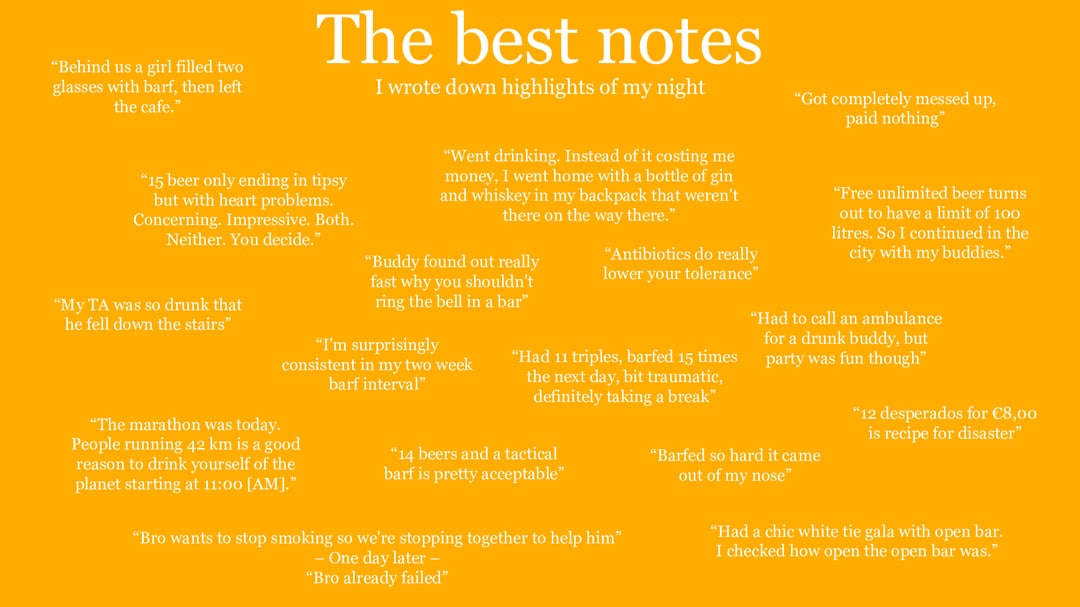 The best notes
I wrote down highlights of my night
“Behind us a girl filled two
glasses with barf, then left
the cafe.”
“Got completely messed up,
paid nothing”
“Went drinking. Instead of it costing me
money, I went home with a bottle of gin
and whiskey in my backpack that weren't
there on the way there.”
“15 beer only ending in tipsy
but with heart problems.
Concerning. Impressive. Both.
Neither. You decide.”
“Free unlimited beer turns
out to have a limit of 100
litres. So I continued in the
city with my buddies.”
“Buddy found out really
fast why you shouldn't
ring the bell in a bar”
“Antibiotics do really
lower your tolerance”
“My TA was so drunk that
he fell down the stairs”
“Had to call an ambulance
for a drunk buddy, but
party was fun though”
“I'm surprisingly
consistent in my two week
barf interval”
“Had 11 triples, barfed 15 times
the next day, bit traumatic,
definitely taking a break”
“12 desperados for €8,00
is recipe for disaster”
“The marathon was today.
People running 42 km is a good
reason to drink yourself of the
planet starting at 11:00 [AM].”
“14 beers and a tactical
barf is pretty acceptable”
“Barfed so hard it came
out of my nose”
“Bro wants to stop smoking so we're stopping together to help him”
– One day later –
“Bro already failed”
“Had a chic white tie gala with open bar.
I checked how open the open bar was.”